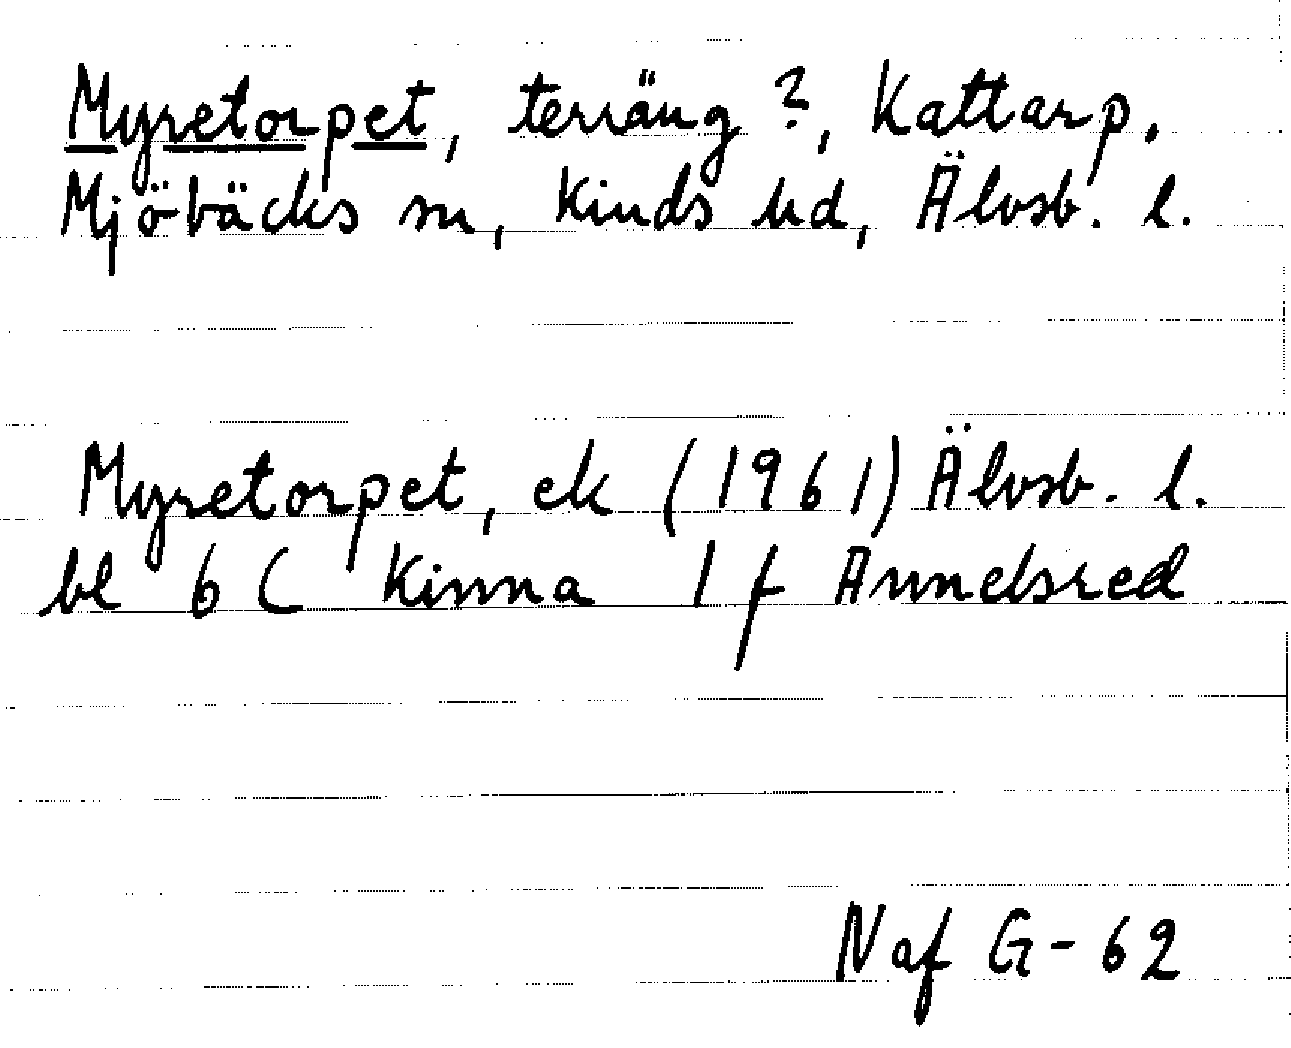 Myretorpet, terräng?, Kattarp,
Mjöbäcks sn, Kinds hd, Älvsb. l.
Myretorpet, ek (1961) Älvsb. l.
bl 6 C Kinna 1 f Annelsred
N af G-62